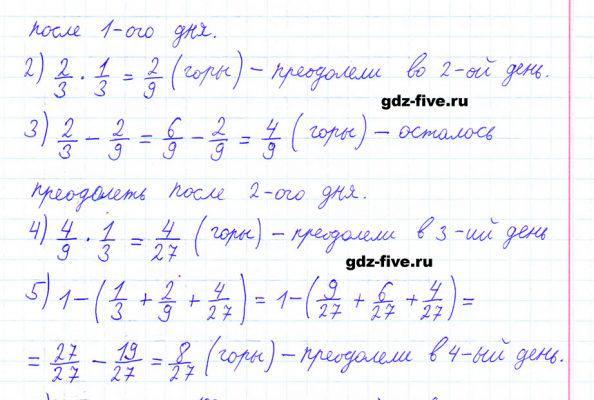 после 1-ого дня.
2) 2/3 · 1/3 = 2/9 (горы) – преодолели во 2-ой день.
gdz-five.ru
3) 2/3 – 2/9 = 6/9 – 2/9 = 4/9 (горы) – осталось
преодолеть после 2-ого дня.
4) 4/9 · 1/3 = 4/27 (горы) – преодолели в 3-ий день
gdz-five.ru
5) 1 – (1/3 + 2/9 + 4/27) = 1 – (9/27 + 6/27 + 4/27) =
= 27/27 – 19/27 = 8/27 (горы) – преодолели в 4-ый день.